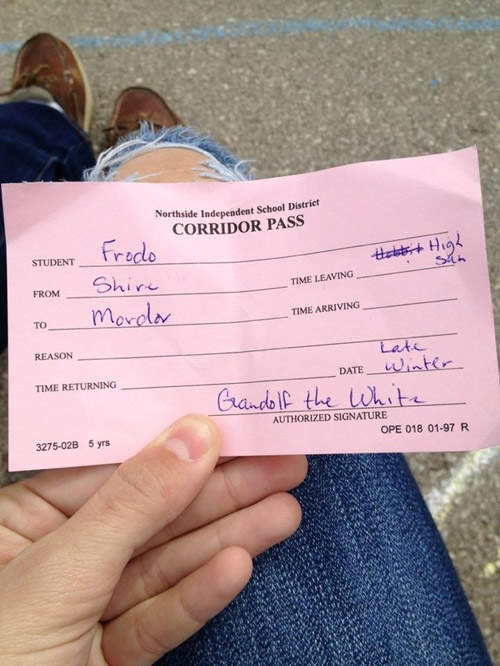 Northside Independent School District
CORRIDOR PASS
STUDENT Frodo
Hobbit High
FROM Shire TIME LEAVING Sun
TO Mordor TIME ARRIVING
REASON
Late
TIME RETURNING DATE Winter
Gandolf the White
AUTHORIZED SIGNATURE
3275-02B 5 yrs OPE 018 01-97 R